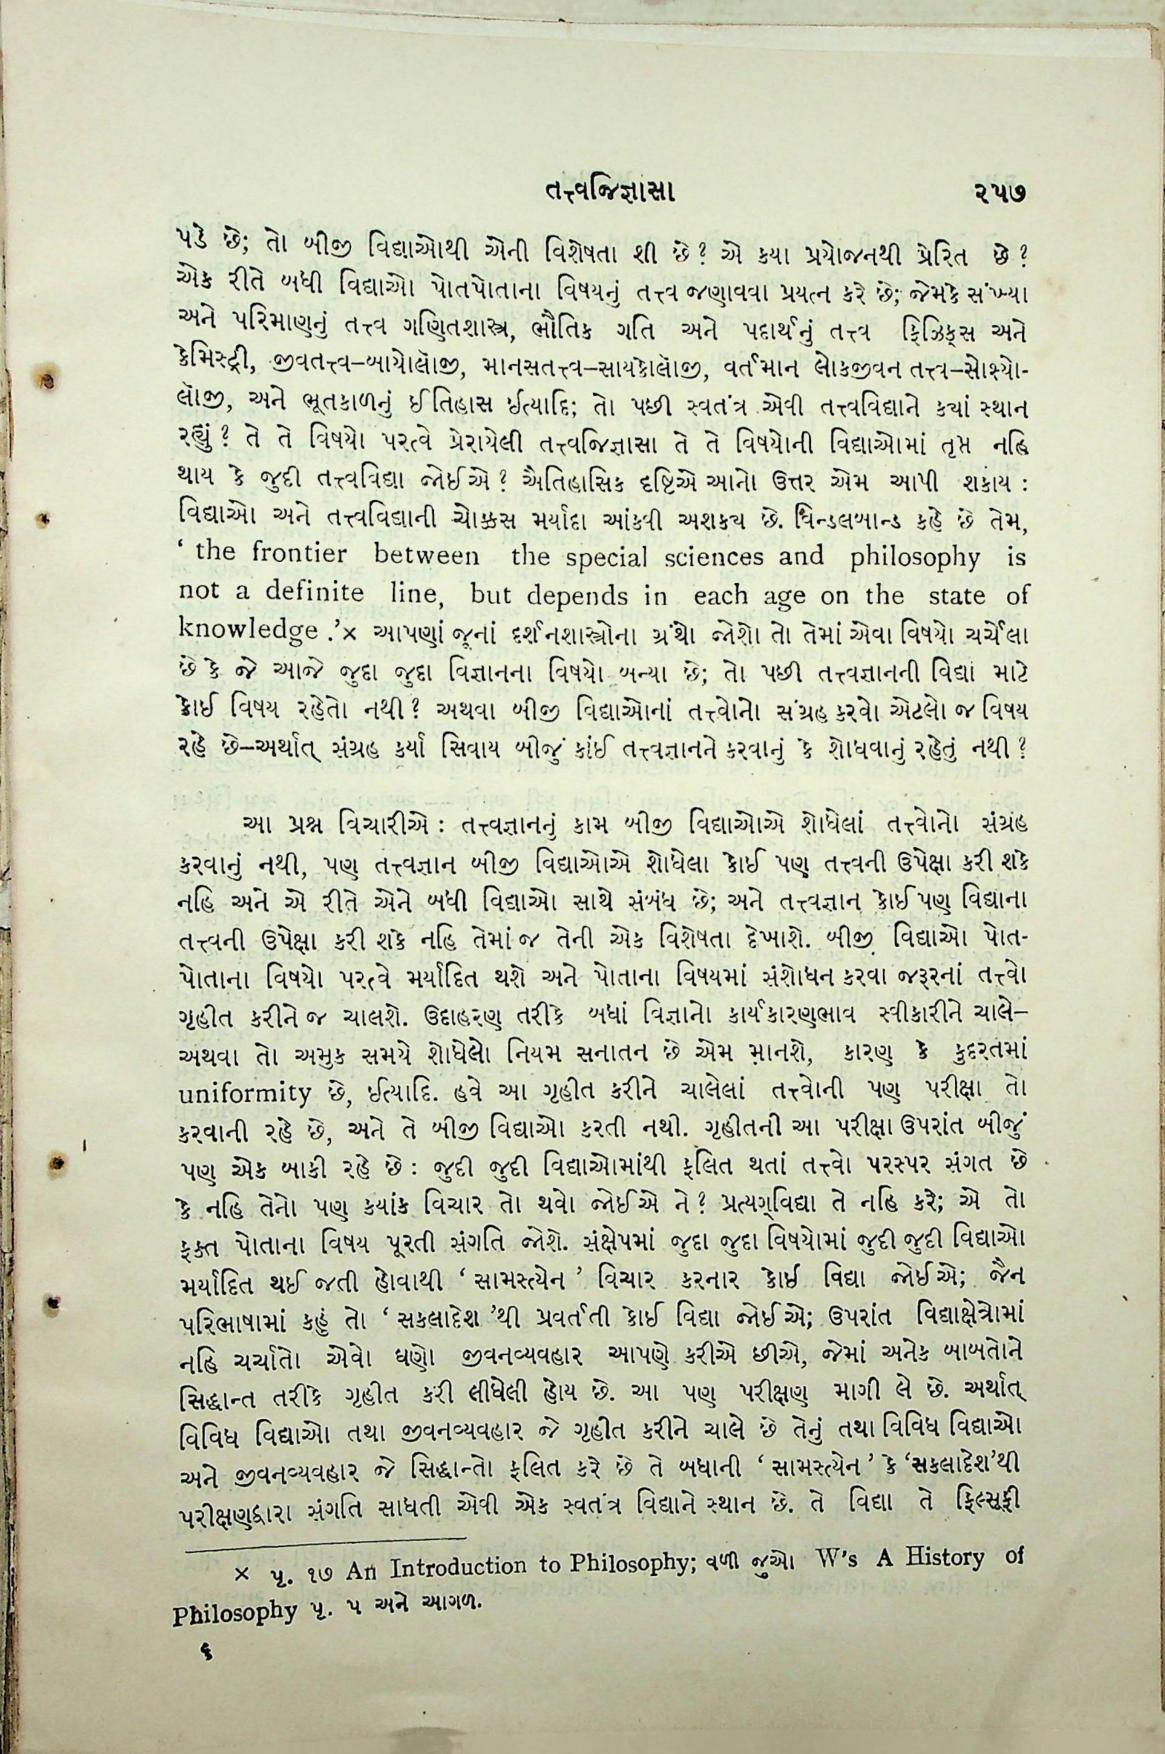 તત્ત્વજિજ્ઞાસા ૨૫૭
પડે છે; તો બીજી વિદ્યાઓથી એની વિશેષતા શી છે? એ કયા પ્રયોજનથી પ્રેરિત છે?
એક રીતે બધી વિદ્યાઓ પોતપોતાના વિષયનું તત્ત્વ જણાવવા પ્રયત્ન કરે છે; જેમકે સંખ્યા
અને પરિમાણનું તત્ત્વ ગણિતશાસ્ત્ર, ભૌતિક ગતિ અને પદાર્થનું તત્ત્વ ફિઝિક્સ અને
કેમિસ્ટ્રી, જીવતત્ત્વ–બાયોલૉજી, માનસતત્ત્વ–સાયકોલૉજી, વર્તમાન લોકજીવન તત્ત્વ–સોશ્યો-
લૉજી, અને ભૂતકાળનું ઈતિહાસ ઈત્યાદિ; તો પછી સ્વતંત્ર એવી તત્ત્વવિદ્યાને ક્યાં સ્થાન
રહ્યું? તે તે વિષયો પરત્વે પ્રેરાયેલી તત્ત્વજિજ્ઞાસા તે તે વિષયોની વિદ્યાઓમાં તૃપ્ત નહિ
થાય કે જુદી તત્ત્વવિદ્યા જોઈએ? ઐતિહાસિક દૃષ્ટિએ આનો ઉત્તર એમ આપી શકાય :
વિદ્યાઓ અને તત્ત્વવિદ્યાની ચોક્કસ મર્યાદા આંકવી અશક્ય છે. વિન્ડલબાન્ડ કહે છે તેમ,
‘ the frontier between the special sciences and philosophy is
not a definite line, but depends in each age on the state of
knowledge .’× આપણાં જૂનાં દર્શનશાસ્ત્રોના ગ્રંથો જોશો તો તેમાં એવા વિષયો ચર્ચેલા
છે કે જે આજે જુદા જુદા વિજ્ઞાનના વિષયો બન્યા છે; તો પછી તત્ત્વજ્ઞાનની વિદ્યા માટે
કોઈ વિષય રહેતો નથી? અથવા બીજી વિદ્યાઓનાં તત્ત્વોનો સંગ્રહ કરવો એટલો જ વિષય
રહે છે–અર્થાત્ સંગ્રહ કર્યા સિવાય બીજું કાંઈ તત્ત્વજ્ઞાનને કરવાનું કે શોધવાનું રહેતું નથી?
આ પ્રશ્ન વિચારીએ : તત્ત્વજ્ઞાનનું કામ બીજી વિદ્યાઓએ શોધેલાં તત્ત્વોનો સંગ્રહ
કરવાનું નથી, પણ તત્ત્વજ્ઞાન બીજી વિદ્યાઓએ શોધેલા કોઈ પણ તત્ત્વની ઉપેક્ષા કરી શકે
નહિ અને એ રીતે એને બધી વિદ્યાઓ સાથે સંબંધ છે; અને તત્ત્વજ્ઞાન કોઈ પણ વિદ્યાના
તત્ત્વની ઉપેક્ષા કરી શકે નહિ તેમાં જ તેની એક વિશેષતા દેખાશે. બીજી વિદ્યાઓ પોત-
પોતાના વિષયો પરત્વે મર્યાદિત થશે અને પોતાના વિષયમાં સંશોધન કરવા જરૂરનાં તત્ત્વો
ગૃહીત કરીને જ ચાલશે. ઉદાહરણ તરીકે બધાં વિજ્ઞાનો કાર્યકારણભાવ સ્વીકારીને ચાલે–
અથવા તો અમુક સમયે શોધેલો નિયમ સનાતન છે એમ માનશે, કારણ કે કુદરતમાં
uniformity છે, ઈત્યાદિ. હવે આ ગૃહીત કરીને ચાલેલાં તત્ત્વોની પણ પરીક્ષા તો
કરવાની રહે છે, અને તે બીજી વિદ્યાઓ કરતી નથી. ગૃહીતની આ પરીક્ષા ઉપરાંત બીજું
પણ એક બાકી રહે છે : જુદી જુદી વિદ્યાઓમાંથી ફલિત થતાં તત્ત્વો પરસ્પર સંગત છે
કે નહિ તેનો પણ ક્યાંક વિચાર તો થવો જોઈએ ને? પ્રત્યગ્‌વિદ્યા તે નહિ કરે; એ તો
ફક્ત પોતાના વિષય પૂરતી સંગતિ જોશે. સંક્ષેપમાં જુદા જુદા વિષયોમાં જુદી જુદી વિદ્યાઓ
મર્યાદિત થઈ જતી હોવાથી ‘ સામસ્ત્યેન ’ વિચાર કરનાર કોઈ વિદ્યા જોઈએ; જૈન
પરિભાષામાં કહું તો ‘ સકલાદેશ ’થી પ્રવર્તતી કોઈ વિદ્યા જોઈએ; ઉપરાંત વિદ્યાક્ષેત્રોમાં
નહિ ચર્ચાતો એવો ઘણો જીવનવ્યવહાર આપણે કરીએ છીએ, જેમાં અનેક બાબતોને
સિદ્ધાન્ત તરીકે ગૃહીત કરી લીધેલી હોય છે. આ પણ પરીક્ષણ માગી લે છે. અર્થાત્
વિવિધ વિદ્યાઓ તથા જીવનવ્યવહાર જે ગૃહીત કરીને ચાલે છે તેનું તથા વિવિધ વિદ્યાઓ
અને જીવનવ્યવહાર જે સિદ્ધાન્તો ફલિત કરે છે તે બધાની ‘ સામસ્ત્યેન ’ કે ‘સકલાદેશ’થી
પરીક્ષણદ્વારા સંગતિ સાધતી એવી એક સ્વતંત્ર વિદ્યાને સ્થાન છે. તે વિદ્યા તે ફિલ્સૂફી
× પૃ. ૧૭ An Introduction to Philosophy; વળી જુઓ W’s A History of
Philosophy પૃ. ૫ અને આગળ.
૬